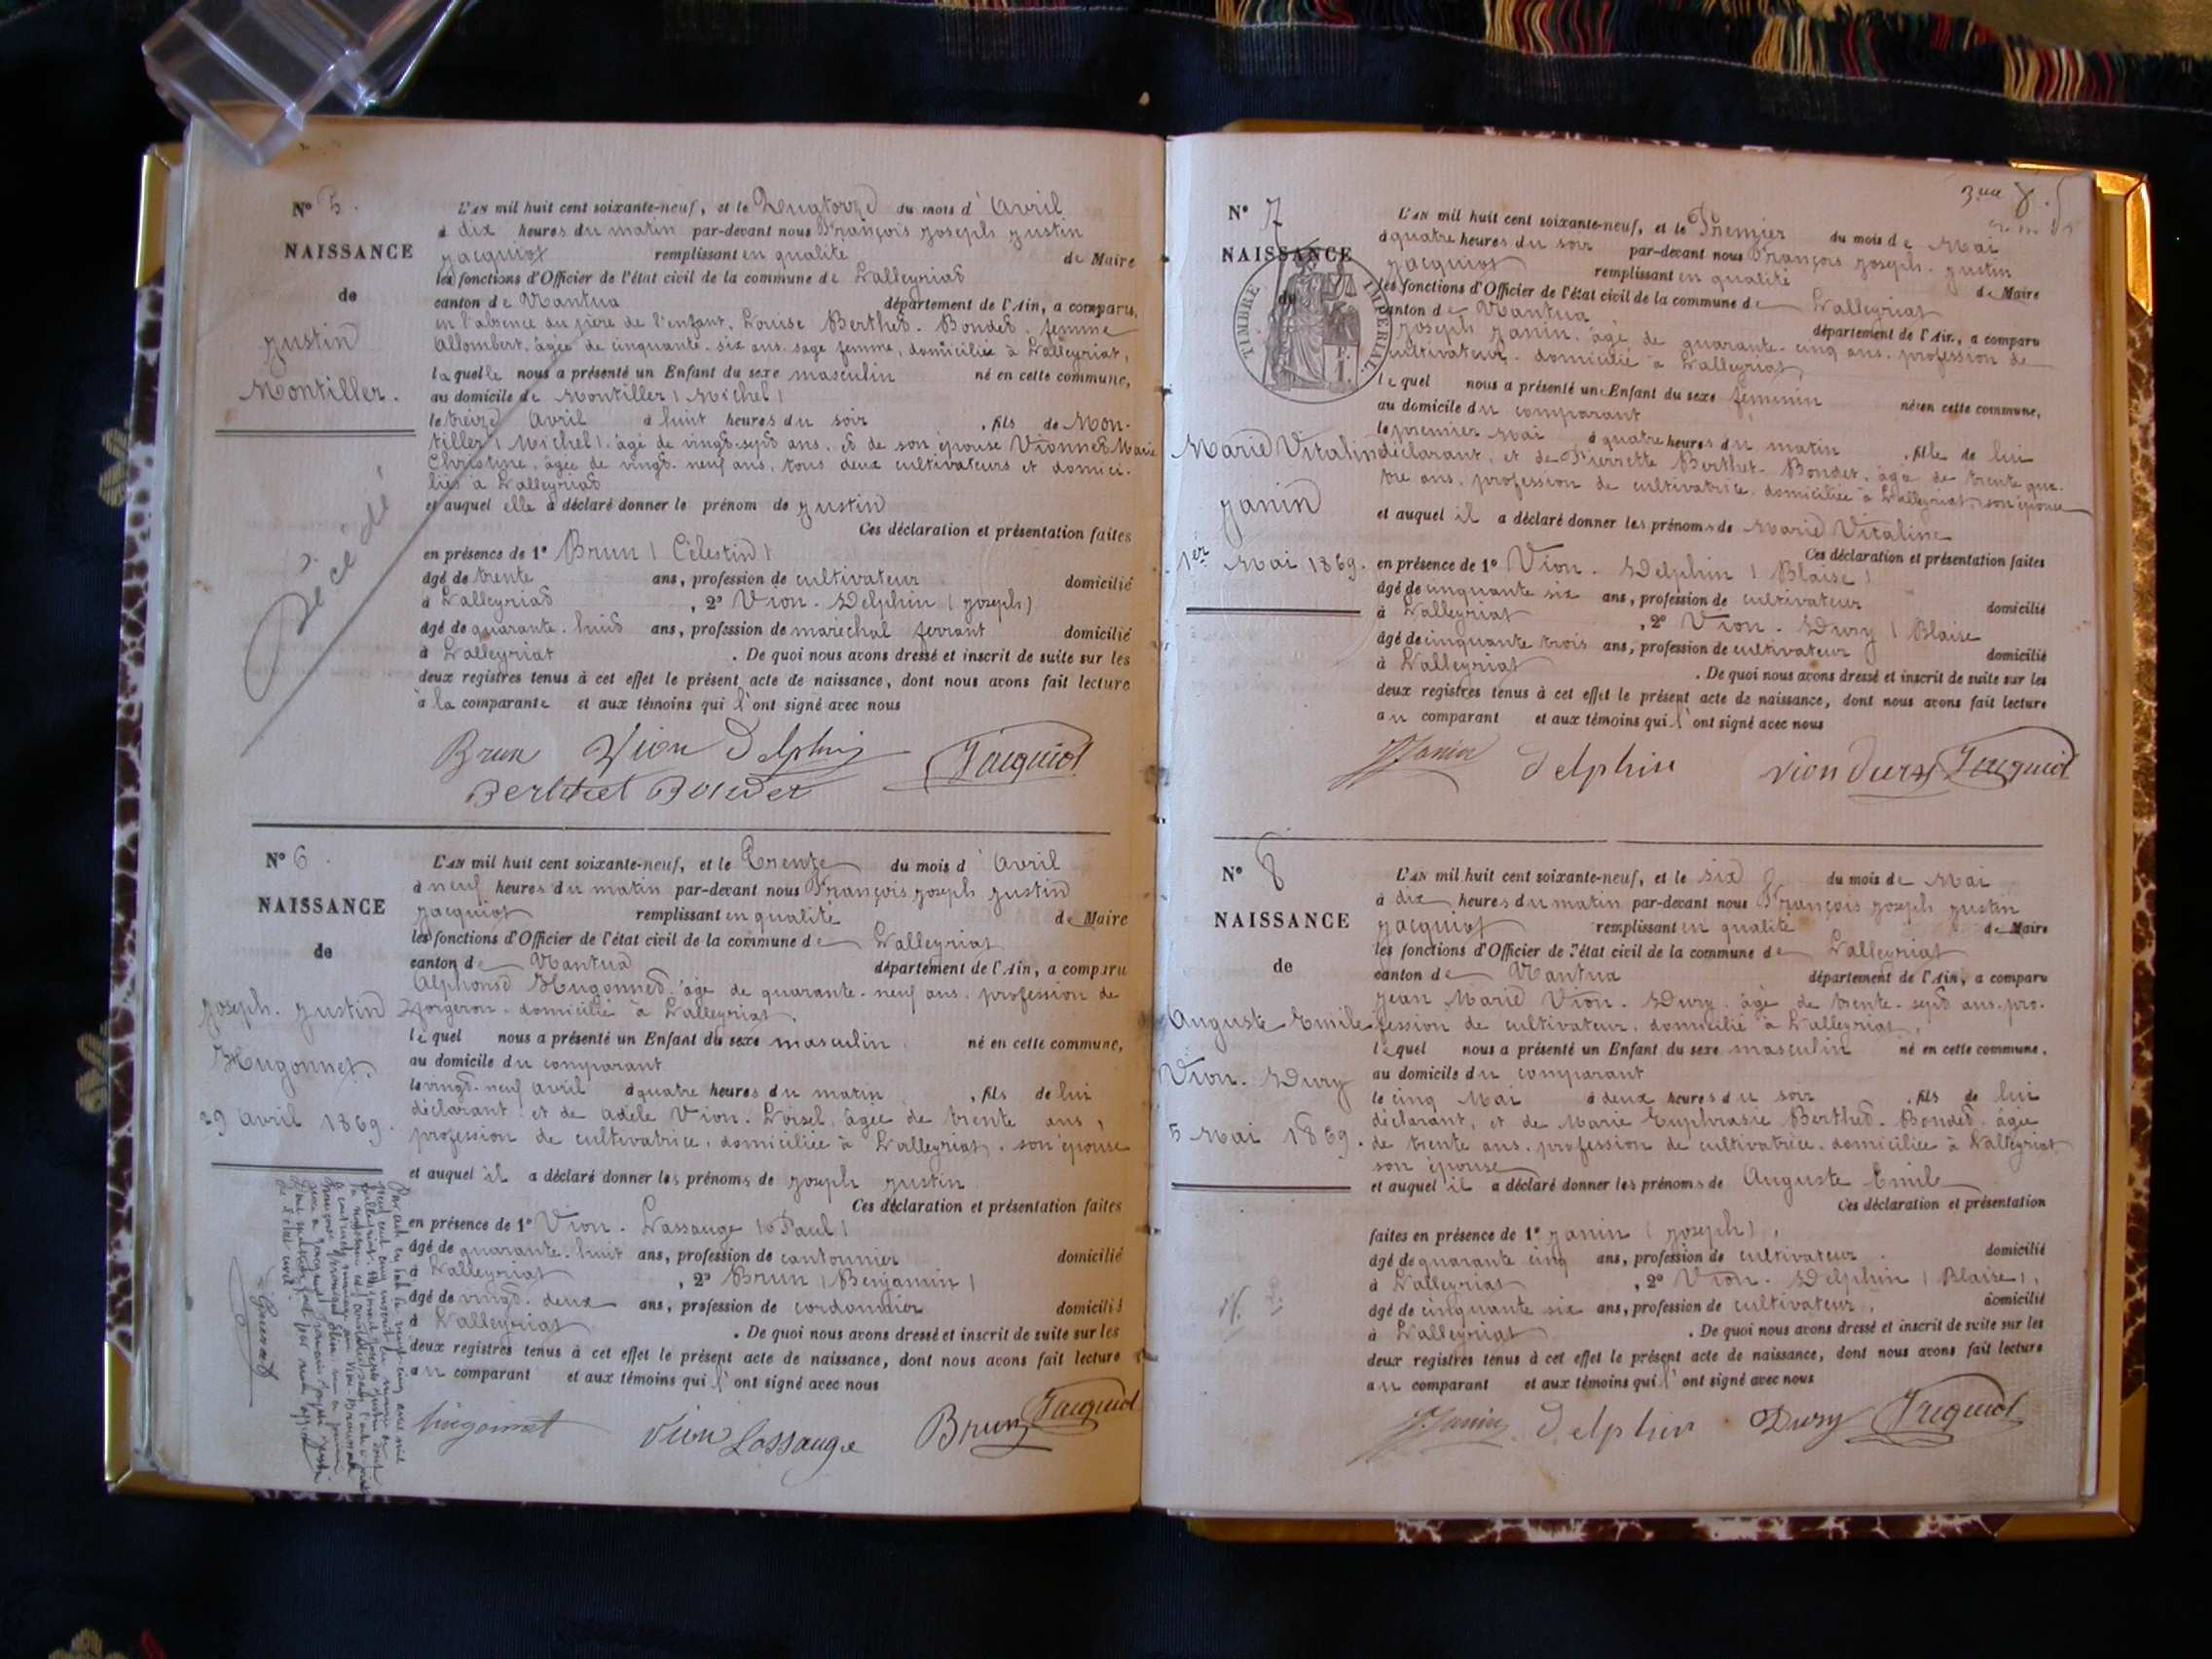 N° 5.
NAISSANCE
de
Justin
Montiller.
Décédé
L'AN mil huit cent soixante-neuf, et le Quatorze du mois d'Avril
à dix heures du matin par-devant nous François Joseph Justin
Jacquiot remplissant en qualité de Maire
les fonctions d'Officier de l'état civil de la commune de Lalleyriat
canton de Nantua département de l'Ain, a comparu,
en l'absence du père de l'enfant, Louise Berthet-Bondet, femme
Allombert, âgée de cinquante-six ans, sage femme, domiciliée à Lalleyriat,
laquelle nous a présenté un Enfant du sexe masculin né en cette commune,
au domicile de Montiller (Michel)
le treize Avril à huit heures du soir, fils de Mon-
tiller (Michel), âgé de vingt-sept ans, et de son épouse Vionnet Marie
Christine, âgée de vingt-neuf ans, tous deux cultivateurs et domici-
liés à Lalleyriat
et auquel elle a déclaré donner le prénom de Justin
Ces déclaration et présentation faites
en présence de 1° Brun (Célestin)
âgé de trente ans, profession de cultivateur domicilié
à Lalleyriat, 2° Vion-Delphin (Joseph)
âgé de quarante-huit ans, profession de maréchal ferrant domicilié
à Lalleyriat. De quoi nous avons dressé et inscrit de suite sur les
deux registres tenus à cet effet le présent acte de naissance, dont nous avons fait lecture
à la comparante et aux témoins qui l'ont signé avec nous
Brun Vion Delphin Jacquiot
Berthet Bondet
N° 6.
NAISSANCE
de
Joseph-Justin
Hugonnet.
29 Avril 1869.
L'AN mil huit cent soixante-neuf, et le Trente du mois d'Avril
à neuf heures du matin par-devant nous François Joseph Justin
Jacquiot remplissant en qualité de Maire
les fonctions d'Officier de l'état civil de la commune de Lalleyriat
canton de Nantua département de l'Ain, a comparu
Alphonse Hugonnet, âgé de quarante-neuf ans, profession de
forgeron, domicilié à Lalleyriat,
lequel nous a présenté un Enfant du sexe masculin né en cette commune,
au domicile du comparant
le vingt-neuf avril à quatre heures du matin, fils de lui
déclarant et de Adèle Vion-Loisel, âgée de trente ans,
profession de cultivatrice, domiciliée à Lalleyriat, son épouse
et auquel il a déclaré donner les prénoms de Joseph Justin
Ces déclaration et présentation faites
en présence de 1° Vion-Lassauge (Paul)
âgé de quarante-huit ans, profession de cantonnier domicilié
à Lalleyriat, 2° Brun (Benjamin)
âgé de vingt-deux ans, profession de cordonnier domicilié
à Lalleyriat. De quoi nous avons dressé et inscrit de suite sur les
deux registres tenus à cet effet le présent acte de naissance, dont nous avons fait lecture
au comparant et aux témoins qui l'ont signé avec nous
hugonnet Vion Lassauge Brun Jacquiot
3me
N° 7
NAISSANCE
de
TIMBRE IMPERIAL
Marie Vitaline
Janin
1er Mai 1869.
L'AN mil huit cent soixante-neuf, et le Premier du mois de Mai
à quatre heures du soir par-devant nous François Joseph-Justin
Jacquiot remplissant en qualité de Maire
les fonctions d'Officier de l'état civil de la commune de Lalleyriat
canton de Nantua département de l'Ain, a comparu
Joseph Janin, âgé de quarante-cinq ans, profession de
cultivateur, domicilié à Lalleyriat,
lequel nous a présenté un Enfant du sexe féminin née en cette commune,
au domicile du comparant
le premier Mai à quatre heures du matin, fille de lui
déclarant, et de Pierrette Berthet-Bondet, âgée de trente qua-
tre ans, profession de cultivatrice, domiciliée à Lalleyriat, son épouse
et auquel il a déclaré donner les prénoms de Marie Vitaline
Ces déclaration et présentation faites
en présence de 1° Vion-Delphin (Blaise)
âgé de cinquante six ans, profession de cultivateur domicilié
à Lalleyriat, 2° Vion-Dury (Blaise
âgé de cinquante trois ans, profession de cultivateur domicilié
à Lalleyriat. De quoi nous avons dressé et inscrit de suite sur les
deux registres tenus à cet effet le présent acte de naissance, dont nous avons fait lecture
au comparant et aux témoins qui l'ont signé avec nous
J Janin Delphin Vion Dury Jacquiot
N° 8
NAISSANCE
de
Auguste Emile
Vion-Dury
5 Mai 1869.
L'AN mil huit cent soixante-neuf, et le six du mois de Mai
à dix heures du matin par-devant nous François Joseph Justin
Jacquiot remplissant en qualité de Maire
les fonctions d'Officier de l'état civil de la commune de Lalleyriat
canton de Nantua département de l'Ain, a comparu
Jean Marie Vion-Dury, âgé de trente-sept ans, pro-
fession de cultivateur, domicilié à Lalleyriat,
lequel nous a présenté un Enfant du sexe masculin né en cette commune,
au domicile du comparant
le cinq Mai à deux heures du soir, fils de lui
déclarant, et de Marie Euphrasie Berthet-Bondet, âgée
de trente ans, profession de cultivatrice, domiciliée à Lalleyriat
son épouse
et auquel il a déclaré donner les prénoms de Auguste Emile
Ces déclaration et présentation
faites en présence de 1° Janin (Joseph),
âgé de quarante cinq ans, profession de cultivateur domicilié
à Lalleyriat, 2° Vion-Delphin (Blaise),
âgé de cinquante six ans, profession de cultivateur, domicilié
à Lalleyriat. De quoi nous avons dressé et inscrit de suite sur les
deux registres tenus à cet effet le présent acte de naissance, dont nous avons fait lecture
au comparant et aux témoins qui l'ont signé avec nous
J Janin Delphin Dury Jacquiot